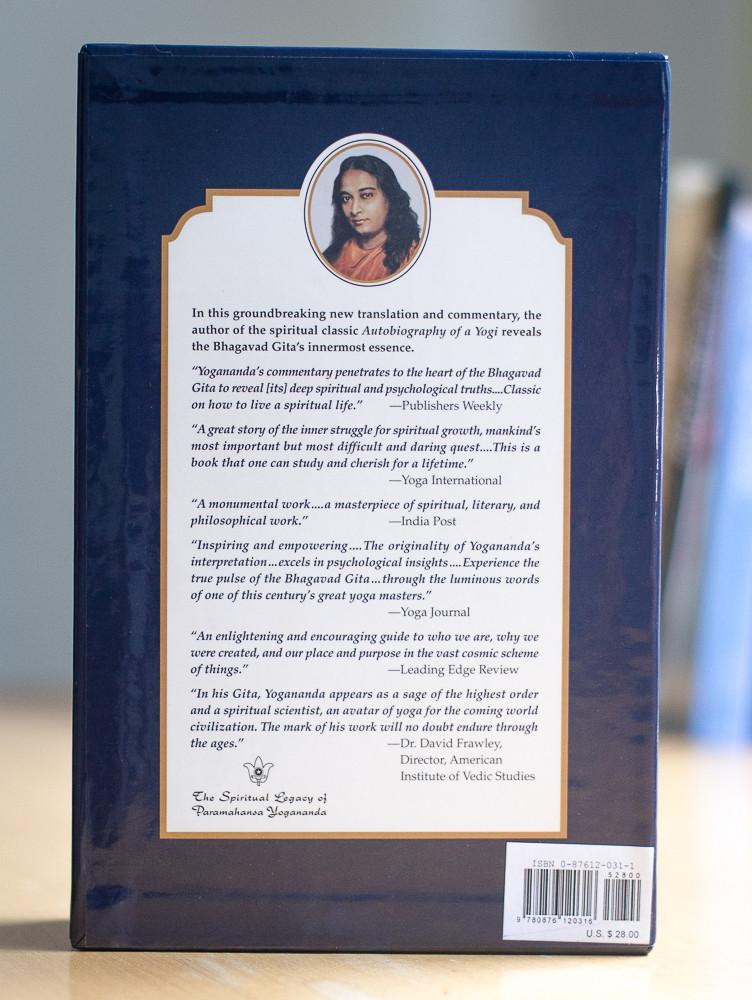 In this groundbreaking new translation and commentary, the
author of the spiritual classic Autobiography of a Yogi reveals
the Bhagavad Gita's innermost essence.
"Yogananda's commentary penetrates to the heart of the Bhagavad
Gita to reveal [its] deep spiritual and psychological truths....Classic
on how to live a spiritual life." —Publishers Weekly
"A great story of the inner struggle for spiritual growth, mankind's
most important but most difficult and daring quest....This is a
book that one can study and cherish for a lifetime."
—Yoga International
"A monumental work....a masterpiece of spiritual, literary, and
philosophical work." —India Post
"Inspiring and empowering....The originality of Yogananda's
interpretation...excels in psychological insights....Experience the
true pulse of the Bhagavad Gita...through the luminous words
of one of this century's great yoga masters."
—Yoga Journal
"An enlightening and encouraging guide to who we are, why we
were created, and our place and purpose in the vast cosmic scheme
of things." —Leading Edge Review
"In his Gita, Yogananda appears as a sage of the highest order
and a spiritual scientist, an avatar of yoga for the coming world
civilization. The mark of his work will no doubt endure through
the ages." —Dr. David Frawley,
Director, American
Institute of Vedic Studies
The Spiritual Legacy of
Paramahansa Yogananda
ISBN 0-87612-031-1
52800
9 780876 120316
U.S. $ 28.00